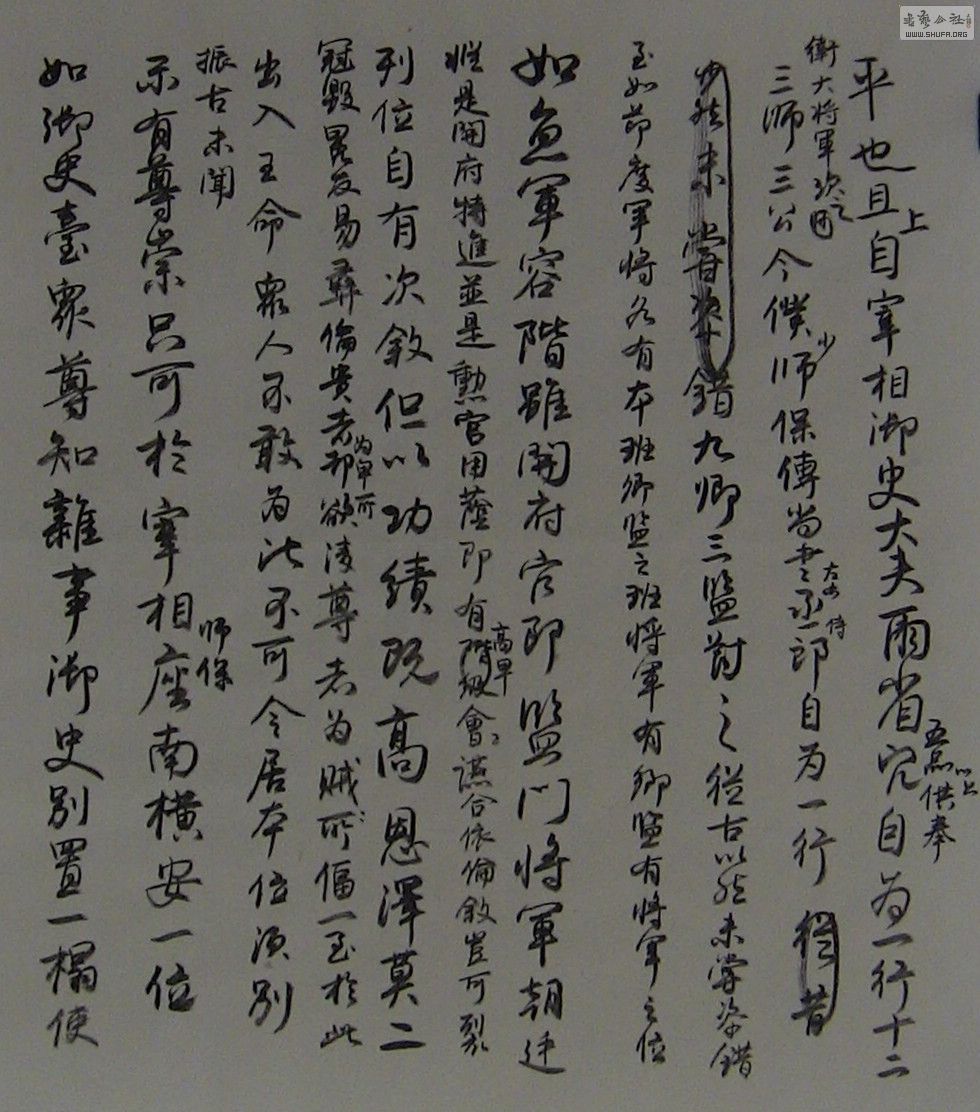 平也且自宰相御史大夫兩省官自為一行十二
上
以上
五品供奉
衛大將軍次之
三師三公令僕師保傅尚書丞郎自為一行
少
左右
侍
從昔
少然未嘗參錯九卿三監對之從古以然未嘗參錯
至如節度軍將各有本班卿監之班將軍有卿監有將軍之位
如魚軍容階雖開府官即監門將軍朝廷
惟是開府特進並是勳官用蔭即有階級會讌合依倫敘豈可裂
高卑
列位自有次敘但以功績既高恩澤莫二
冠毀冕反易彝倫貴者卻欲淩尊者為賊所偪一至於此
為卑所
出入王命眾人不敢為比不可令居本位須別
振古未聞
示有尊崇只可於宰相座南橫安一位
師保
如御史臺眾尊知雜事御史別置一榻使
書藝公社
WWW.SHUFA.ORG